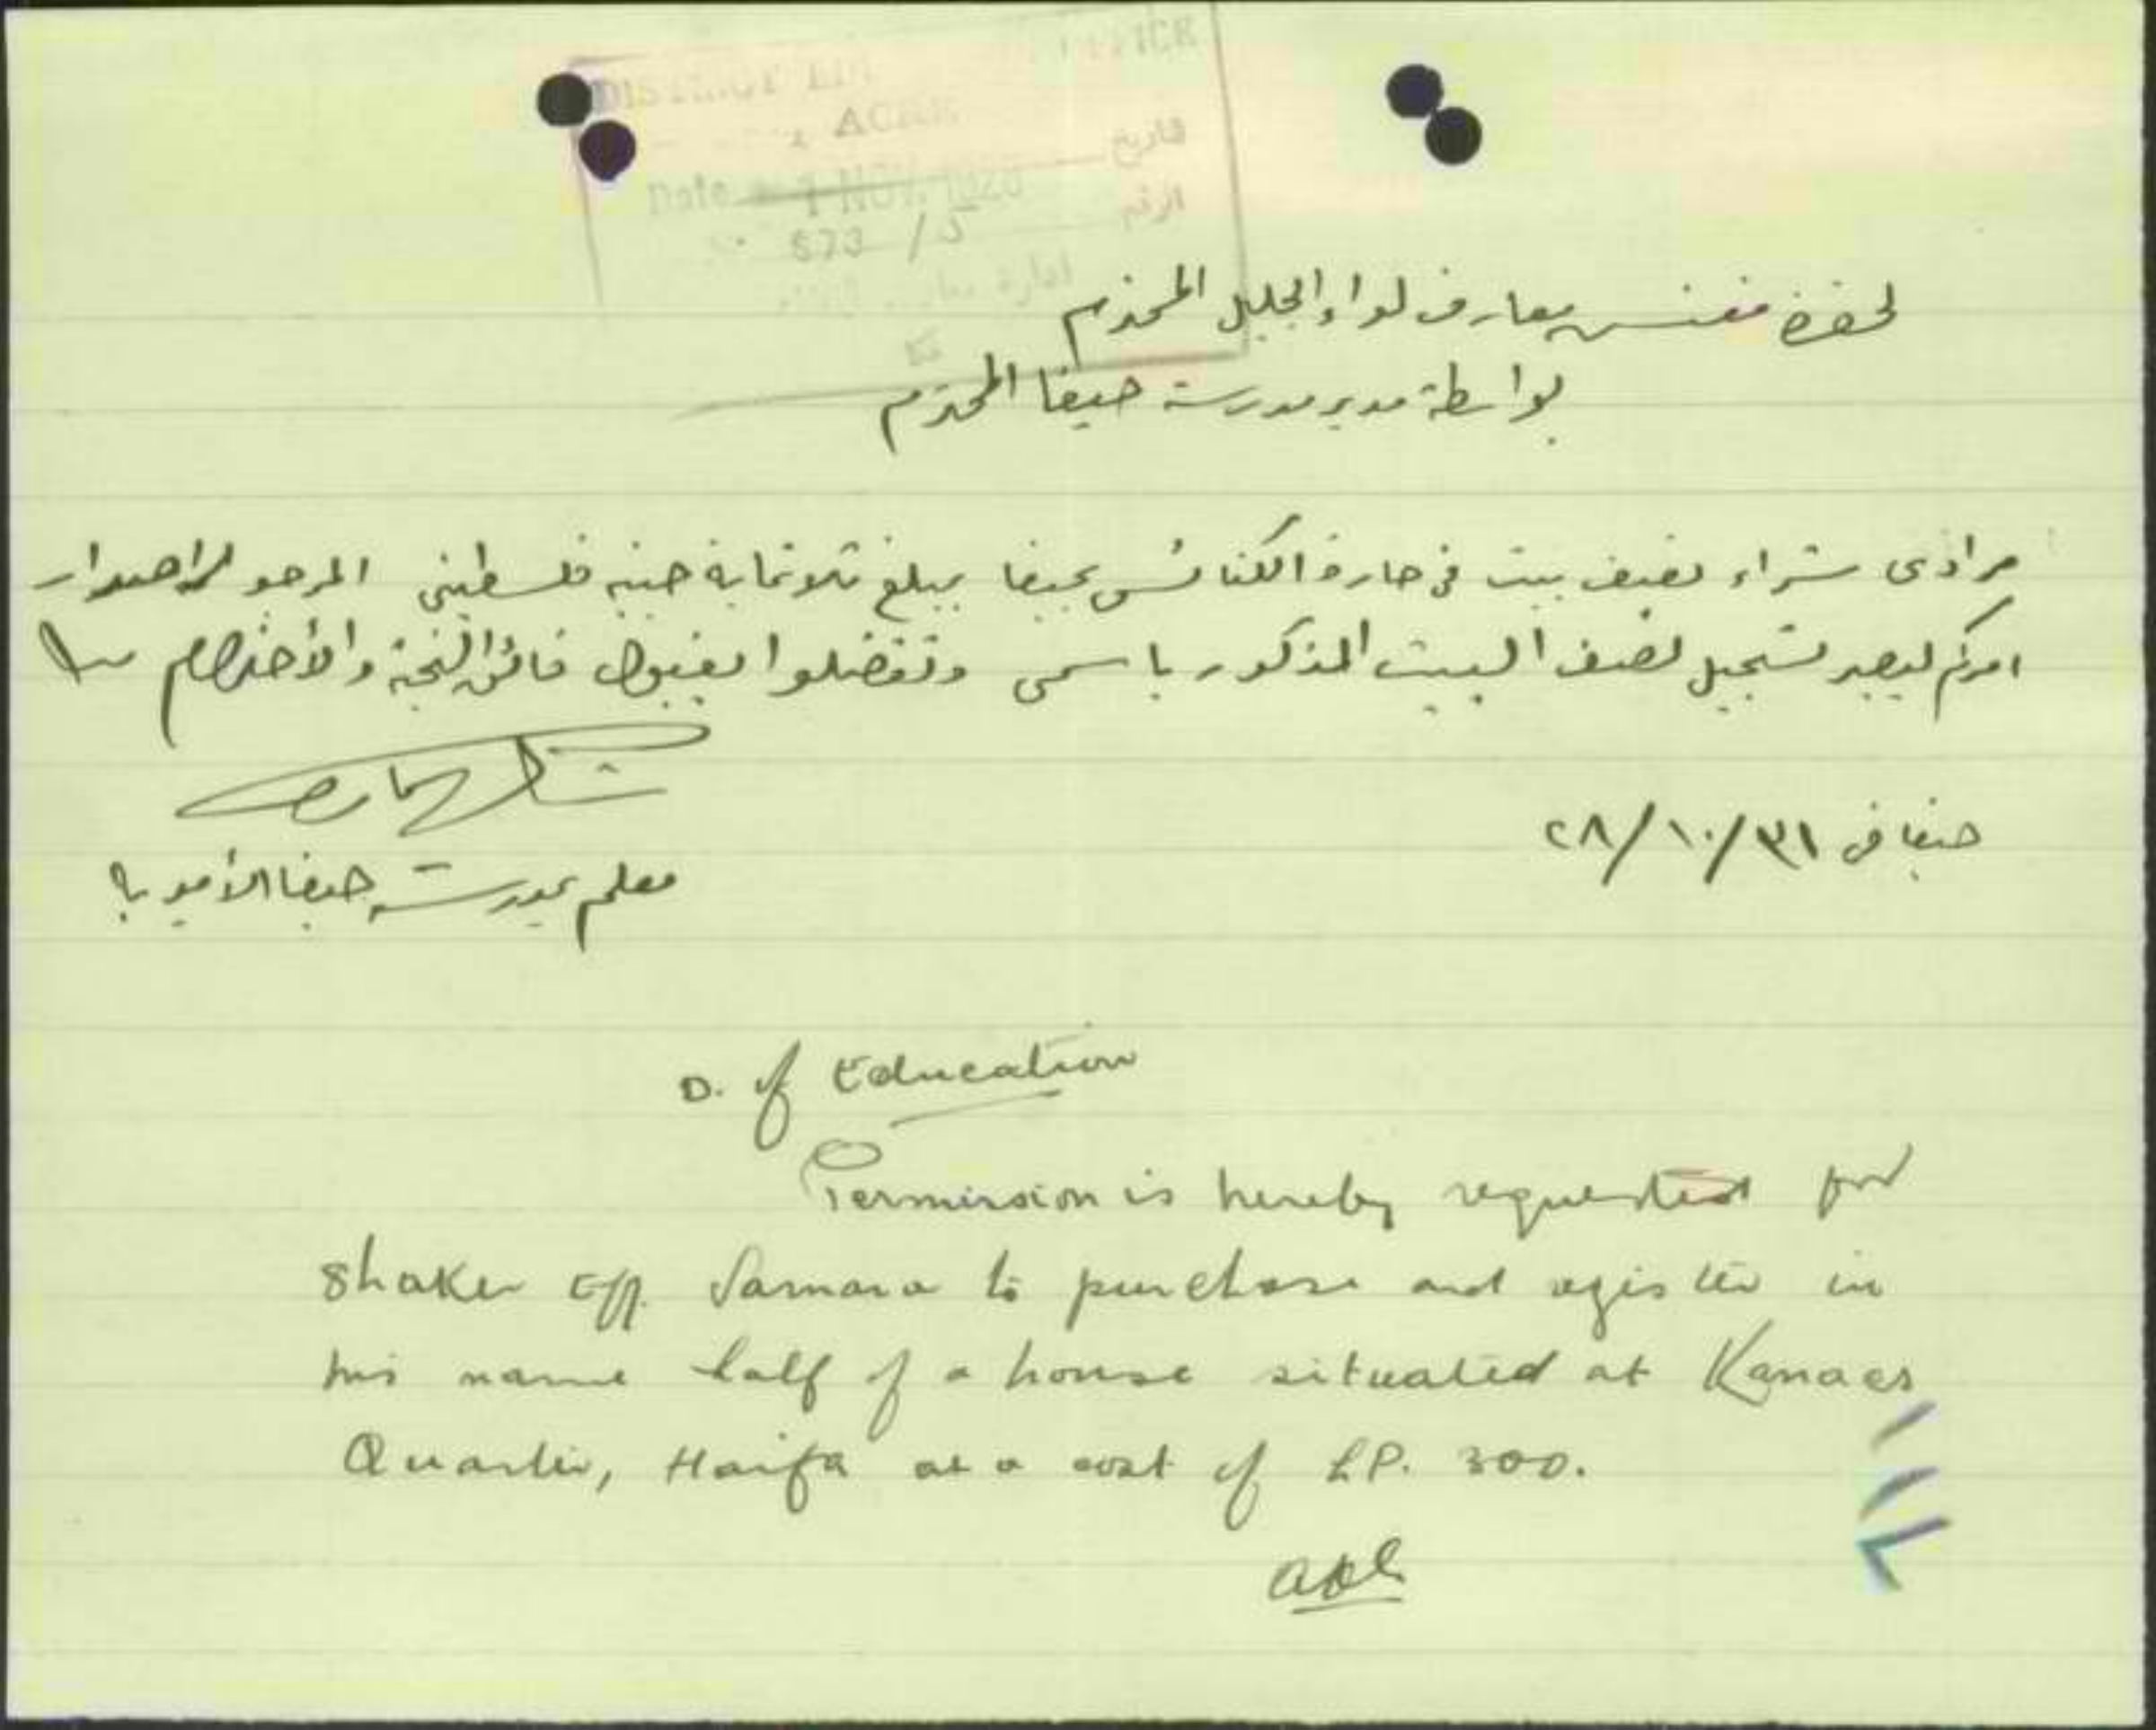 DISTRICT
OFFICE
ACRE
تاريخ
Date 1 NOV. 1928
الرقم
673 / 5
ادارة
عكا
لحضرة مفتش معارف لواء الجليل المحترم
بواسطة مدير مدرسة حيفا المحترم
مرادى شراء نصف بيت في حارة الكنائس بحيفا بمبلغ ثلاثماية جنيه فلسطينى المرجو اصدار
امركم ليصير تسجيل نصف البيت المذكور باسمى وتفضلوا بقبول فائق التحية والأحترام
حيفا في ٢٨/١٠/٣١
شاكر سماره
معلم بمدرسة حيفا الأميرية
D. of Education
Permission is hereby requested for
Shaker Eff. Samara to purchase and register in
his name half of a house situated at Kanaes
Quarter, Haifa at a cost of LP. 300.